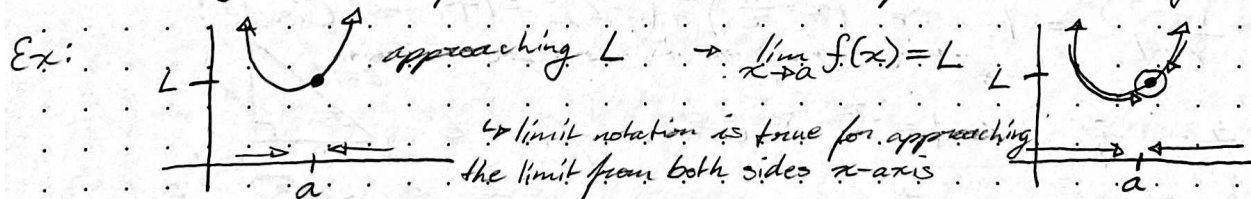 Ex:
L
a
approaching L → lim x→a f(x) = L
↳ limit notation is true for approaching
the limit from both sides x-axis
L
a